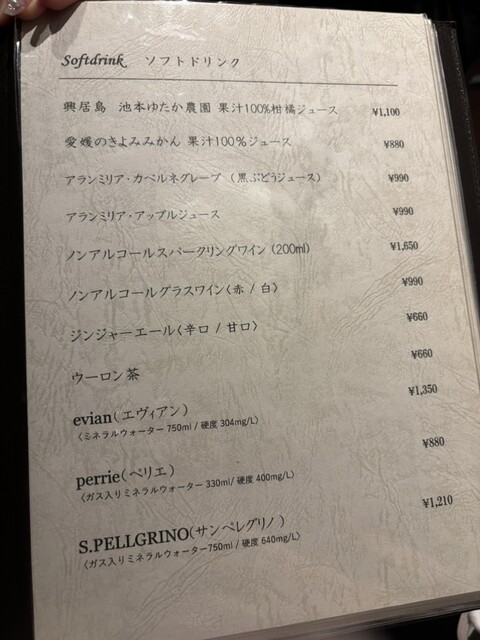 Softdrink ソフトドリンク
興居島 池本ゆたか農園 果汁100%柑橘ジュース ¥1,100
愛媛のきよみみかん 果汁100%ジュース ¥880
アランミリア・カベルネグレープ (黒ぶどうジュース) ¥990
アランミリア・アップルジュース ¥990
ノンアルコールスパークリングワイン (200ml) ¥1,650
ノンアルコールグラスワイン〈赤 / 白〉 ¥990
ジンジャーエール〈辛口 / 甘口〉 ¥660
ウーロン茶 ¥660
evian(エヴィアン) ¥1,350
〈ミネラルウォーター 750ml / 硬度 304mg/L〉
perrie(ペリエ) ¥880
〈ガス入りミネラルウォーター 330ml/ 硬度 400mg/L〉
S.PELLGRINO(サンペレグリノ) ¥1,210
〈ガス入りミネラルウォーター750ml / 硬度 640mg/L〉